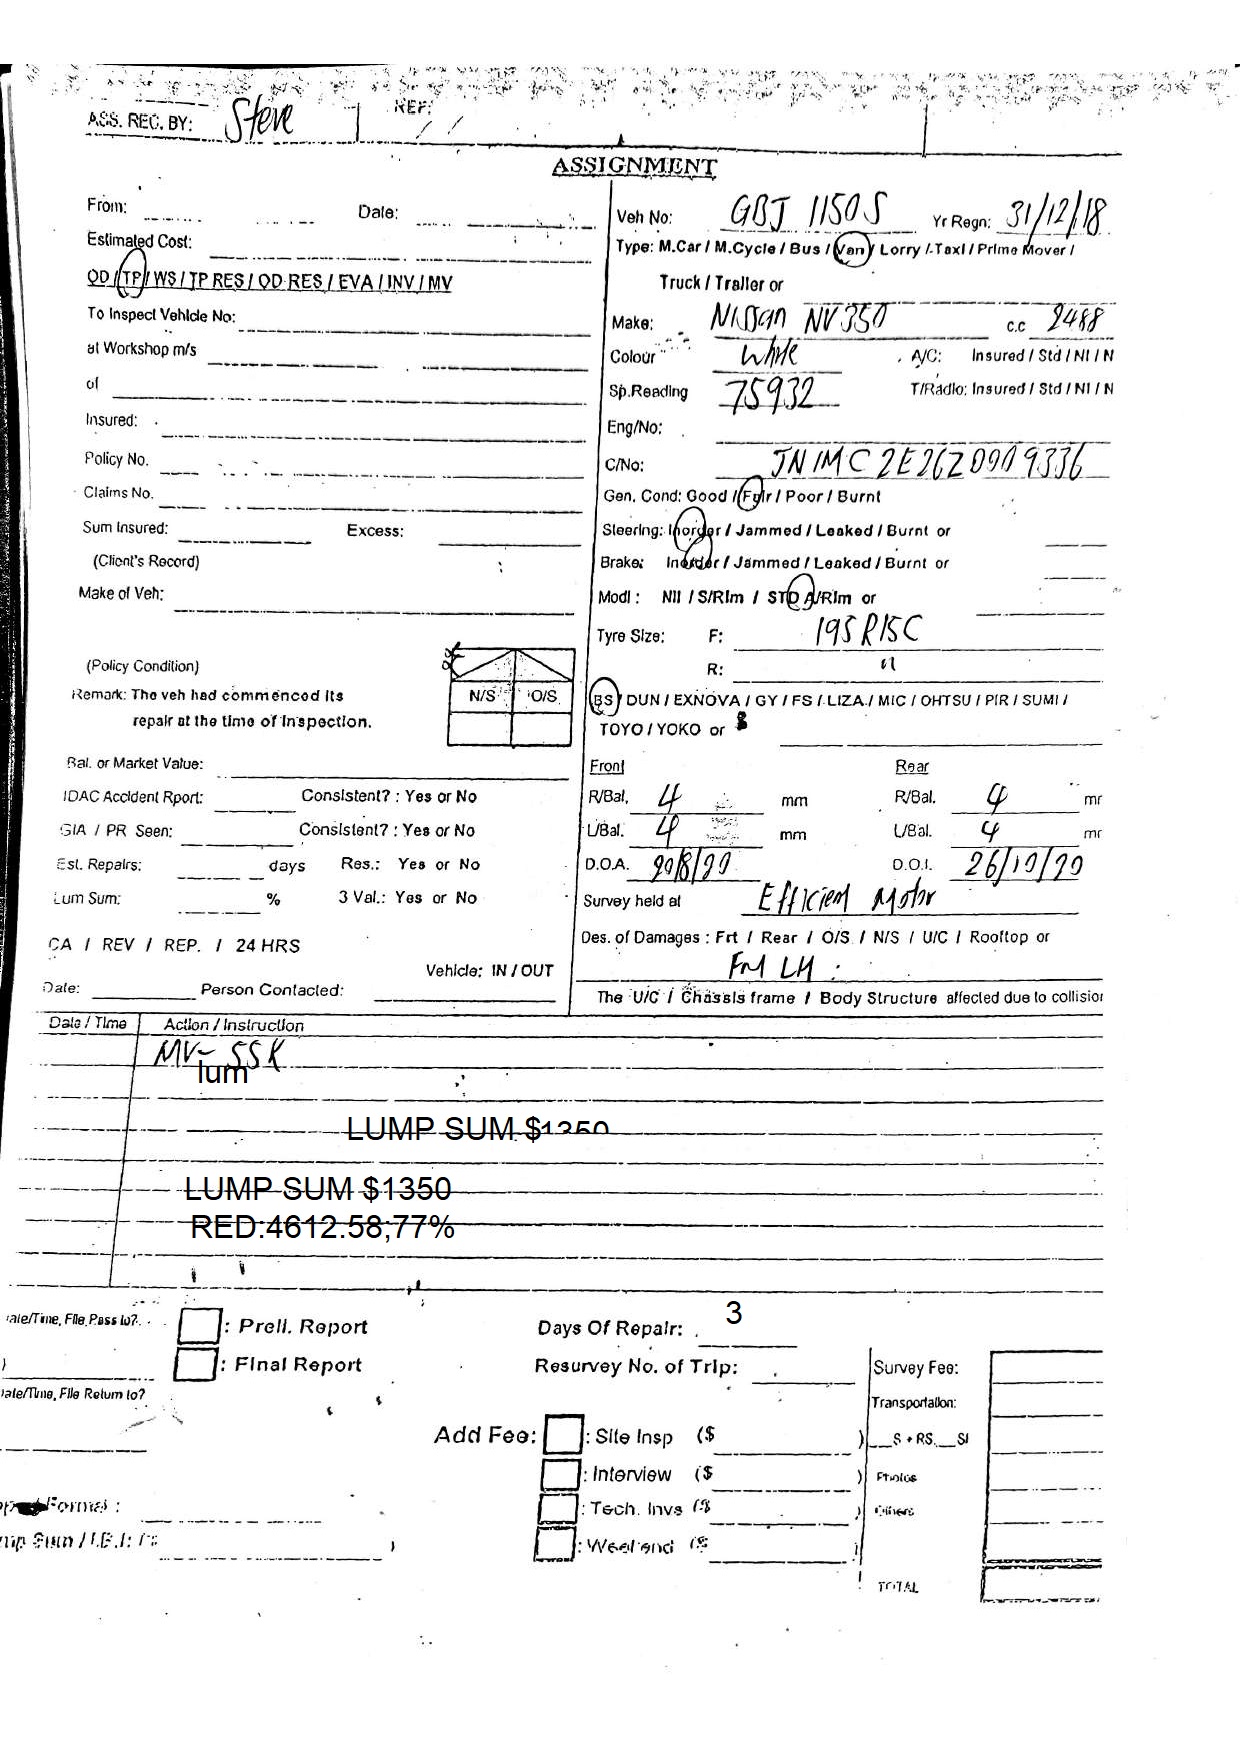 ASS. REC. BY: Steve
REF:
ASSIGNMENT
From: Date:
Estimated Cost:
OD / TP / WS / TP RES / OD RES / EVA / INV / MV
To Inspect Vehicle No:
at Workshop m/s
of
Insured:
Policy No.
Claims No.
Sum Insured: Excess:
(Client's Record)
Make of Veh:
(Policy Condition)
Remark: The veh had commenced its
repair at the time of inspection.
N/S O/S
Bal. or Market Value:
IDAC Accident Rport: Consistent? : Yes or No
GIA / PR Seen: Consistent? : Yes or No
Est. Repairs: days Res.: Yes or No
Lum Sum: % 3 Val.: Yes or No
CA / REV / REP. / 24 HRS
Vehicle: IN / OUT
Date: Person Contacted:
Veh No: GBJ 1150S Yr Regn: 31/12/18
Type: M.Car / M.Cycle / Bus / Van / Lorry / Taxi / Prime Mover /
Truck / Trailer or
Make: Nissan NV350 c.c 2488
Colour White A/C: Insured / Std / NI / N
Sp.Reading 75932 T/Radio: Insured / Std / NI / N
Eng/No:
C/No: JN1MC2E26Z0009336
Gen. Cond: Good / Fair / Poor / Burnt
Steering: Inorder / Jammed / Leaked / Burnt or
Brake: Inorder / Jammed / Leaked / Burnt or
Modi : Nil / S/Rim / STD A/Rim or
Tyre Size: F: 195R15C
R: "
BS / DUN / EXNOVA / GY / FS / LIZA / MIC / OHTSU / PIR / SUMI /
TOYO / YOKO or
Front Rear
R/Bal. 4 mm R/Bal. 4 mr
L/Bal. 4 mm L/Bal. 4 mr
D.O.A. 20/8/20 D.O.I. 26/10/20
Survey held at Efficient Motor
Des. of Damages : Frt / Rear / O/S / N/S / U/C / Rooftop or
Frt LH :
The U/C / Chassis frame / Body Structure affected due to collision
Date / Time Action / Instruction
MV- 55K
lum
LUMP SUM $1350
LUMP SUM $1350
RED:4612.58;77%
ate/Time, File Pass to?
: Preli. Report
: Final Report
ate/Time, File Return to?
Days Of Repair: 3
Resurvey No. of Trip:
Add Fee: : Site Insp ($ )
: Interview ($ )
: Tech. Invs ($ )
: Weekend ($ )
Survey Fee:
Transportation:
S + RS SI
Photos
Others
TOTAL
Format :
mp Sum / I.B.I: ($ )